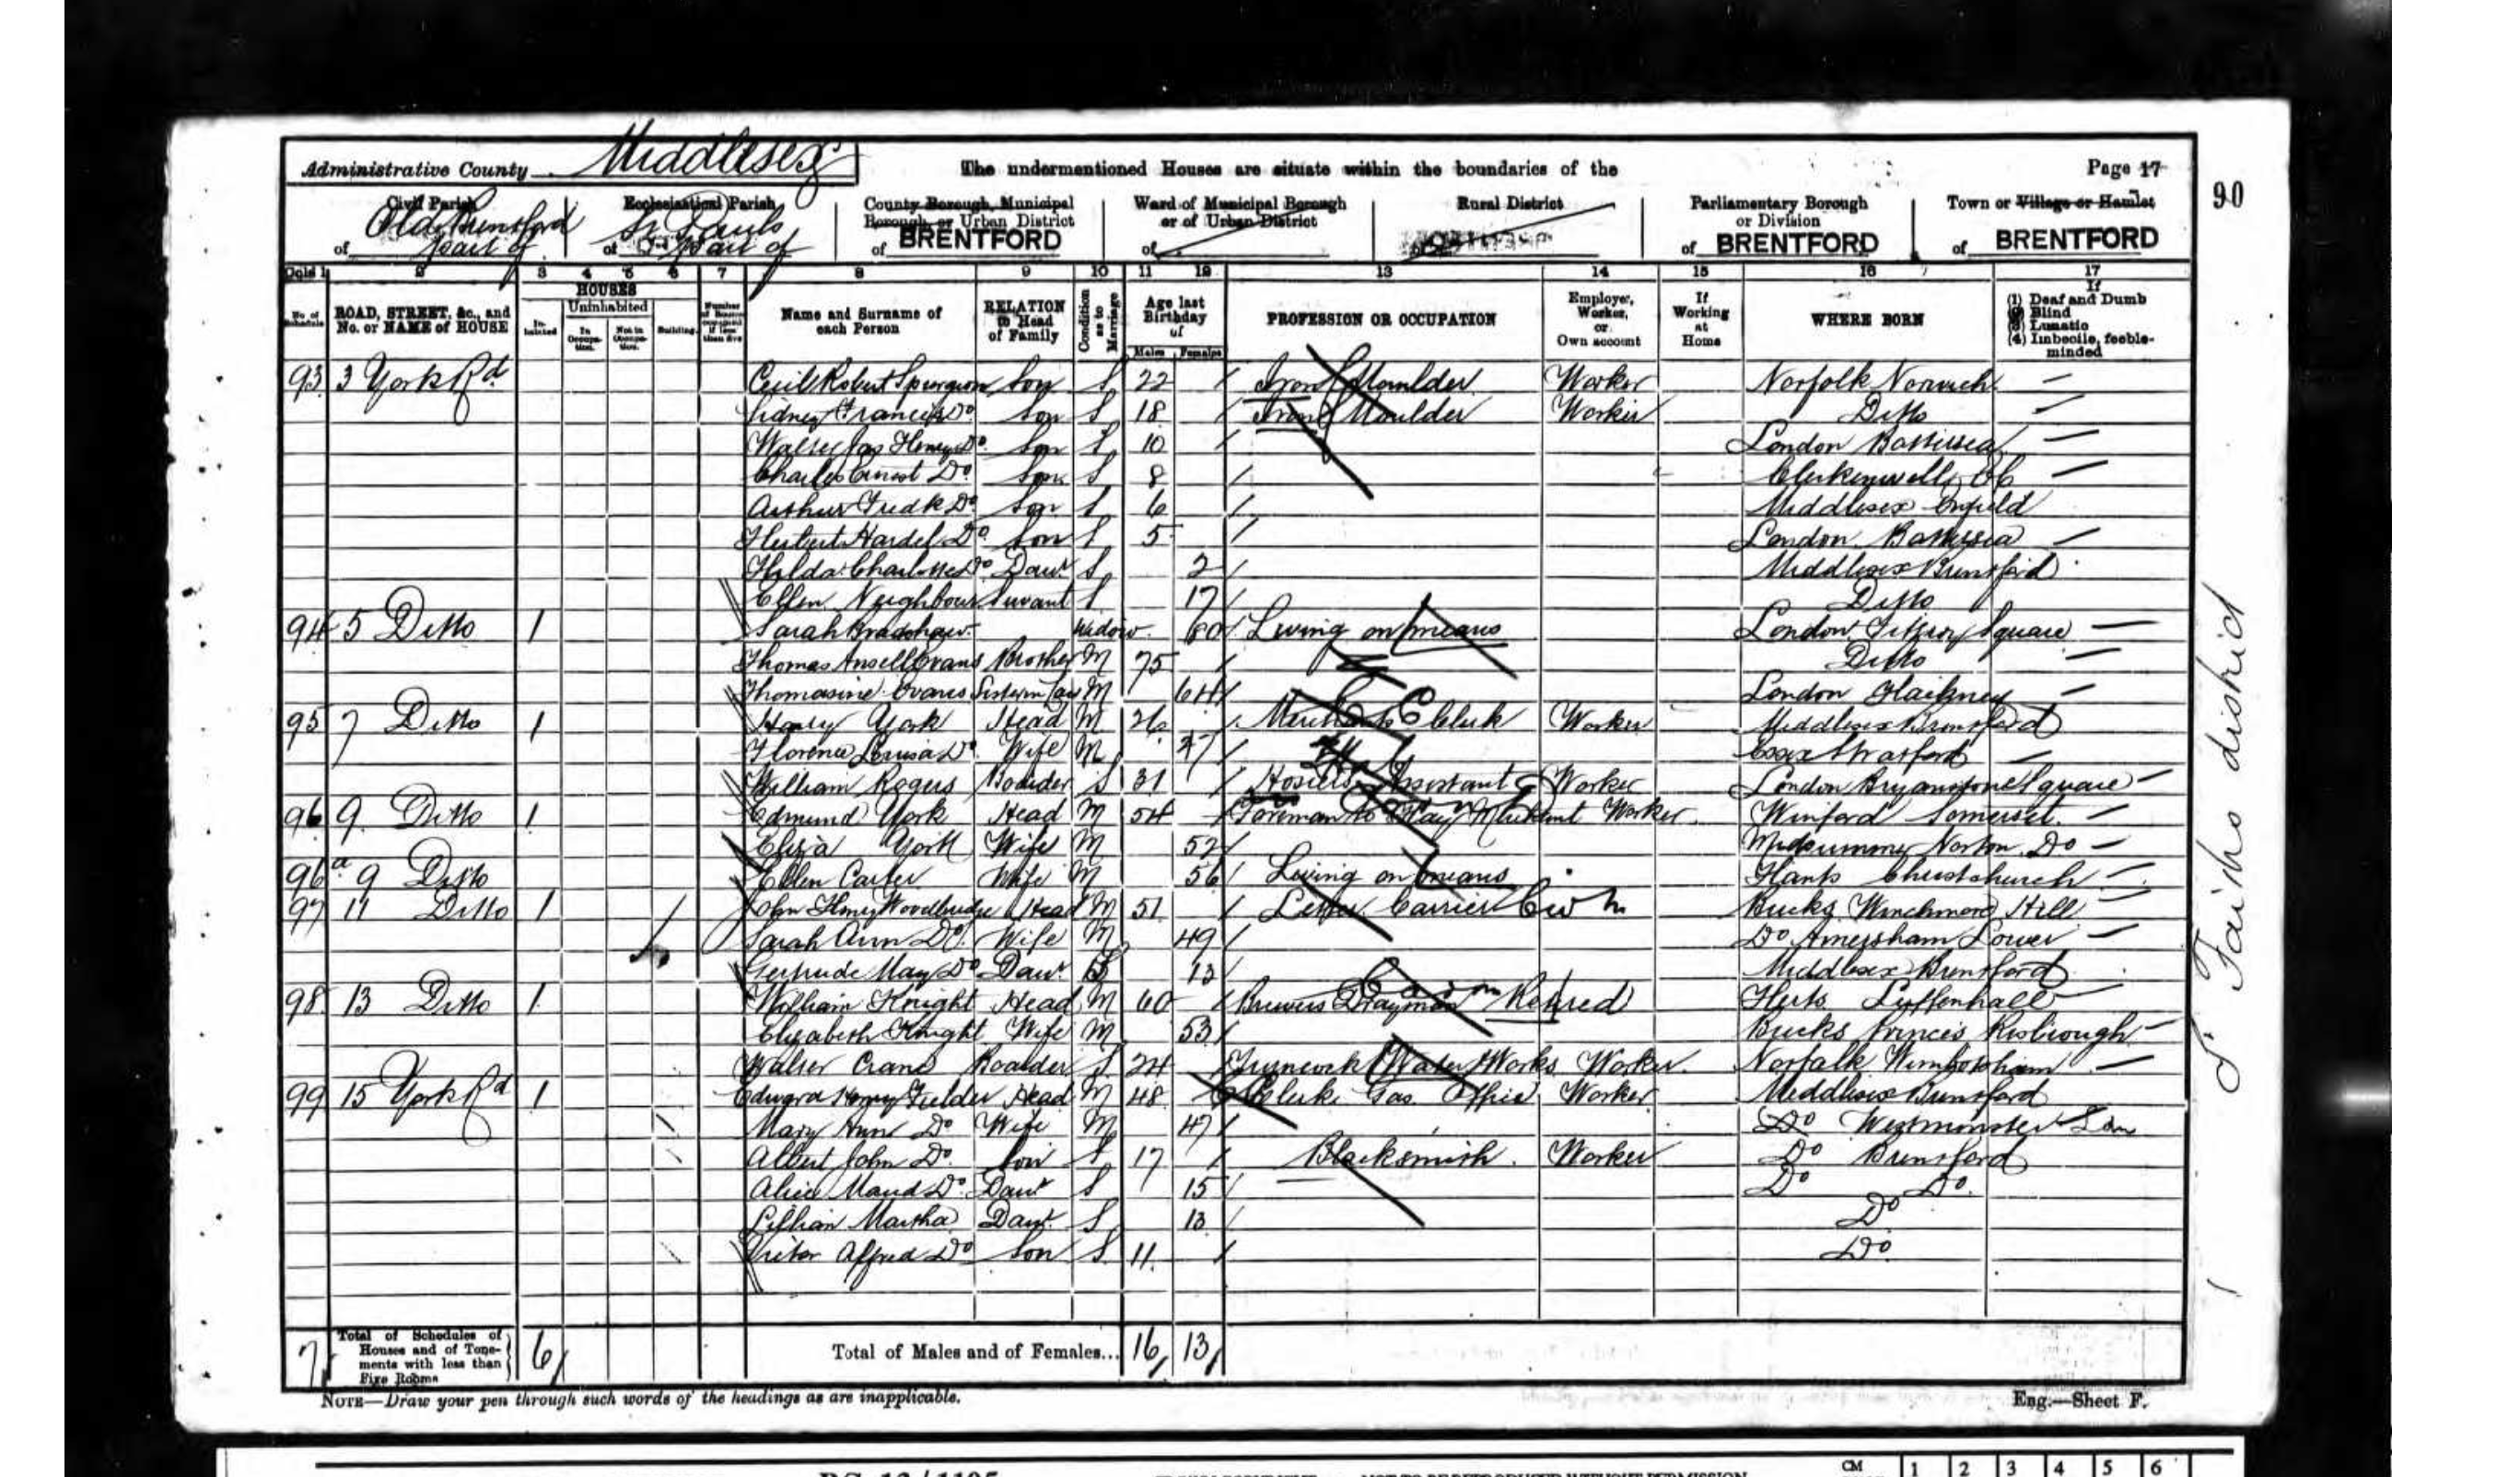 Administrative County Middlesex
The undermentioned Houses are situate within the boundaries of the
Page 17
90
Civil Parish of Old Brentford part of
Ecclesiastical Parish of St Pauls part of
County Borough, Municipal Borough or Urban District of BRENTFORD
Ward of Municipal Borough or of Urban District of
Rural District of
Parliamentary Borough or Division of BRENTFORD
Town or Village or Hamlet of BRENTFORD
Cols 1 2 3 4 5 6 7 8 9 10 11 12 13 14 15 16 17
No. of Schedule
ROAD, STREET, &c., and No. or NAME of HOUSE
HOUSES
In-habited
Uninhabited
In Occupa-tion.
Not in Occupa-tion.
Building.
Number of Rooms occupied if less than five
Name and Surname of each Person
RELATION to Head of Family
Condition as to Marriage
Age last Birthday of
Males Females
PROFESSION OR OCCUPATION
Employer, Worker, or Own account
If Working at Home
WHERE BORN
If (1) Deaf and Dumb (2) Blind (3) Lunatic (4) Imbecile, feeble-minded
93 3 York Rd Cecil Robert Spurgeon Son S 22 Iron Moulder Worker Norfolk Norwich
Sidney Francis Do Son S 18 Iron Moulder Worker Ditto
Walter Jas Henry Do Son S 10 London Battersea
Charles Ernest Do Son S 8 Clerkenwell
Arthur Fredk Do Son S 6 Middlesex Enfield
Herbert Do Son S 5 London Battersea
Hilda Charlotte Do Daur S 2 Middlesex Brentford
Ellen Neighbour Servant S 17 Ditto
94 5 Ditto 1 Sarah Bradshaw Widow 60 Living on means London Fitzroy Square
Thomas Ansell Evans Brother M 75 Ditto
Thomasine Evans Sister in Law M 64 London Hackney
95 7 Ditto 1 Harry York Head M 26 Clerk Worker Middlesex Brentford
Florence Louisa Do Wife M 27 Essex Stratford
William Rogers Boarder S 31 Hosiers Assistant Worker London Bryanstone Square
96 9 Ditto 1 Edmund York Head M 54 Foreman to Hay Merchant Worker Winford Somerset
Eliza York Wife M 52 Midsummer Norton Do
96a 9 Ditto Ellen Carter Wife M 56 Living on means Hants Christchurch
97 11 Ditto 1 John Henry Woodbridge Head M 51 Letter Carrier Bucks Winchmore Hill
Sarah Ann Do Wife M 49 Do Amersham Lower
Gertrude May Do Daur S 13 Middlesex Brentford
98 13 Ditto 1 William Knight Head M 60 Brewers Drayman Retired Herts Luffenhall
Elizabeth Knight Wife M 53 Bucks Princes Risborough
Walter Crane Boarder S 24 Turncock Water Works Worker Norfolk
99 15 York Rd 1 Edward Henry Fielder Head M 48 Clerk Gas Office Worker Middlesex Brentford
Mary Ann Do Wife M 47 Do Westminster Lon
Albert John Do Son S 17 Blacksmith Worker Do Brentford
Alice Maud Do Daur S 15 Do Do
Lillian Martha Daur S 13 Do
Victor Alfred Do Son S 11 Do
St Faiths district
7 Total of Schedules of Houses and of Tene-ments with less than Five Rooms 6 Total of Males and of Females... 16 13
NOTE—Draw your pen through such words of the headings as are inapplicable.
Eng.—Sheet F.
CM 1 2 3 4 5 6